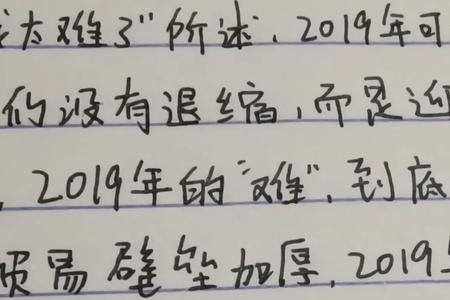 太难了"所述,2019年可
们没有退缩,而是迎
,2019年的"难",到底
贸易壁垒加厚,2019